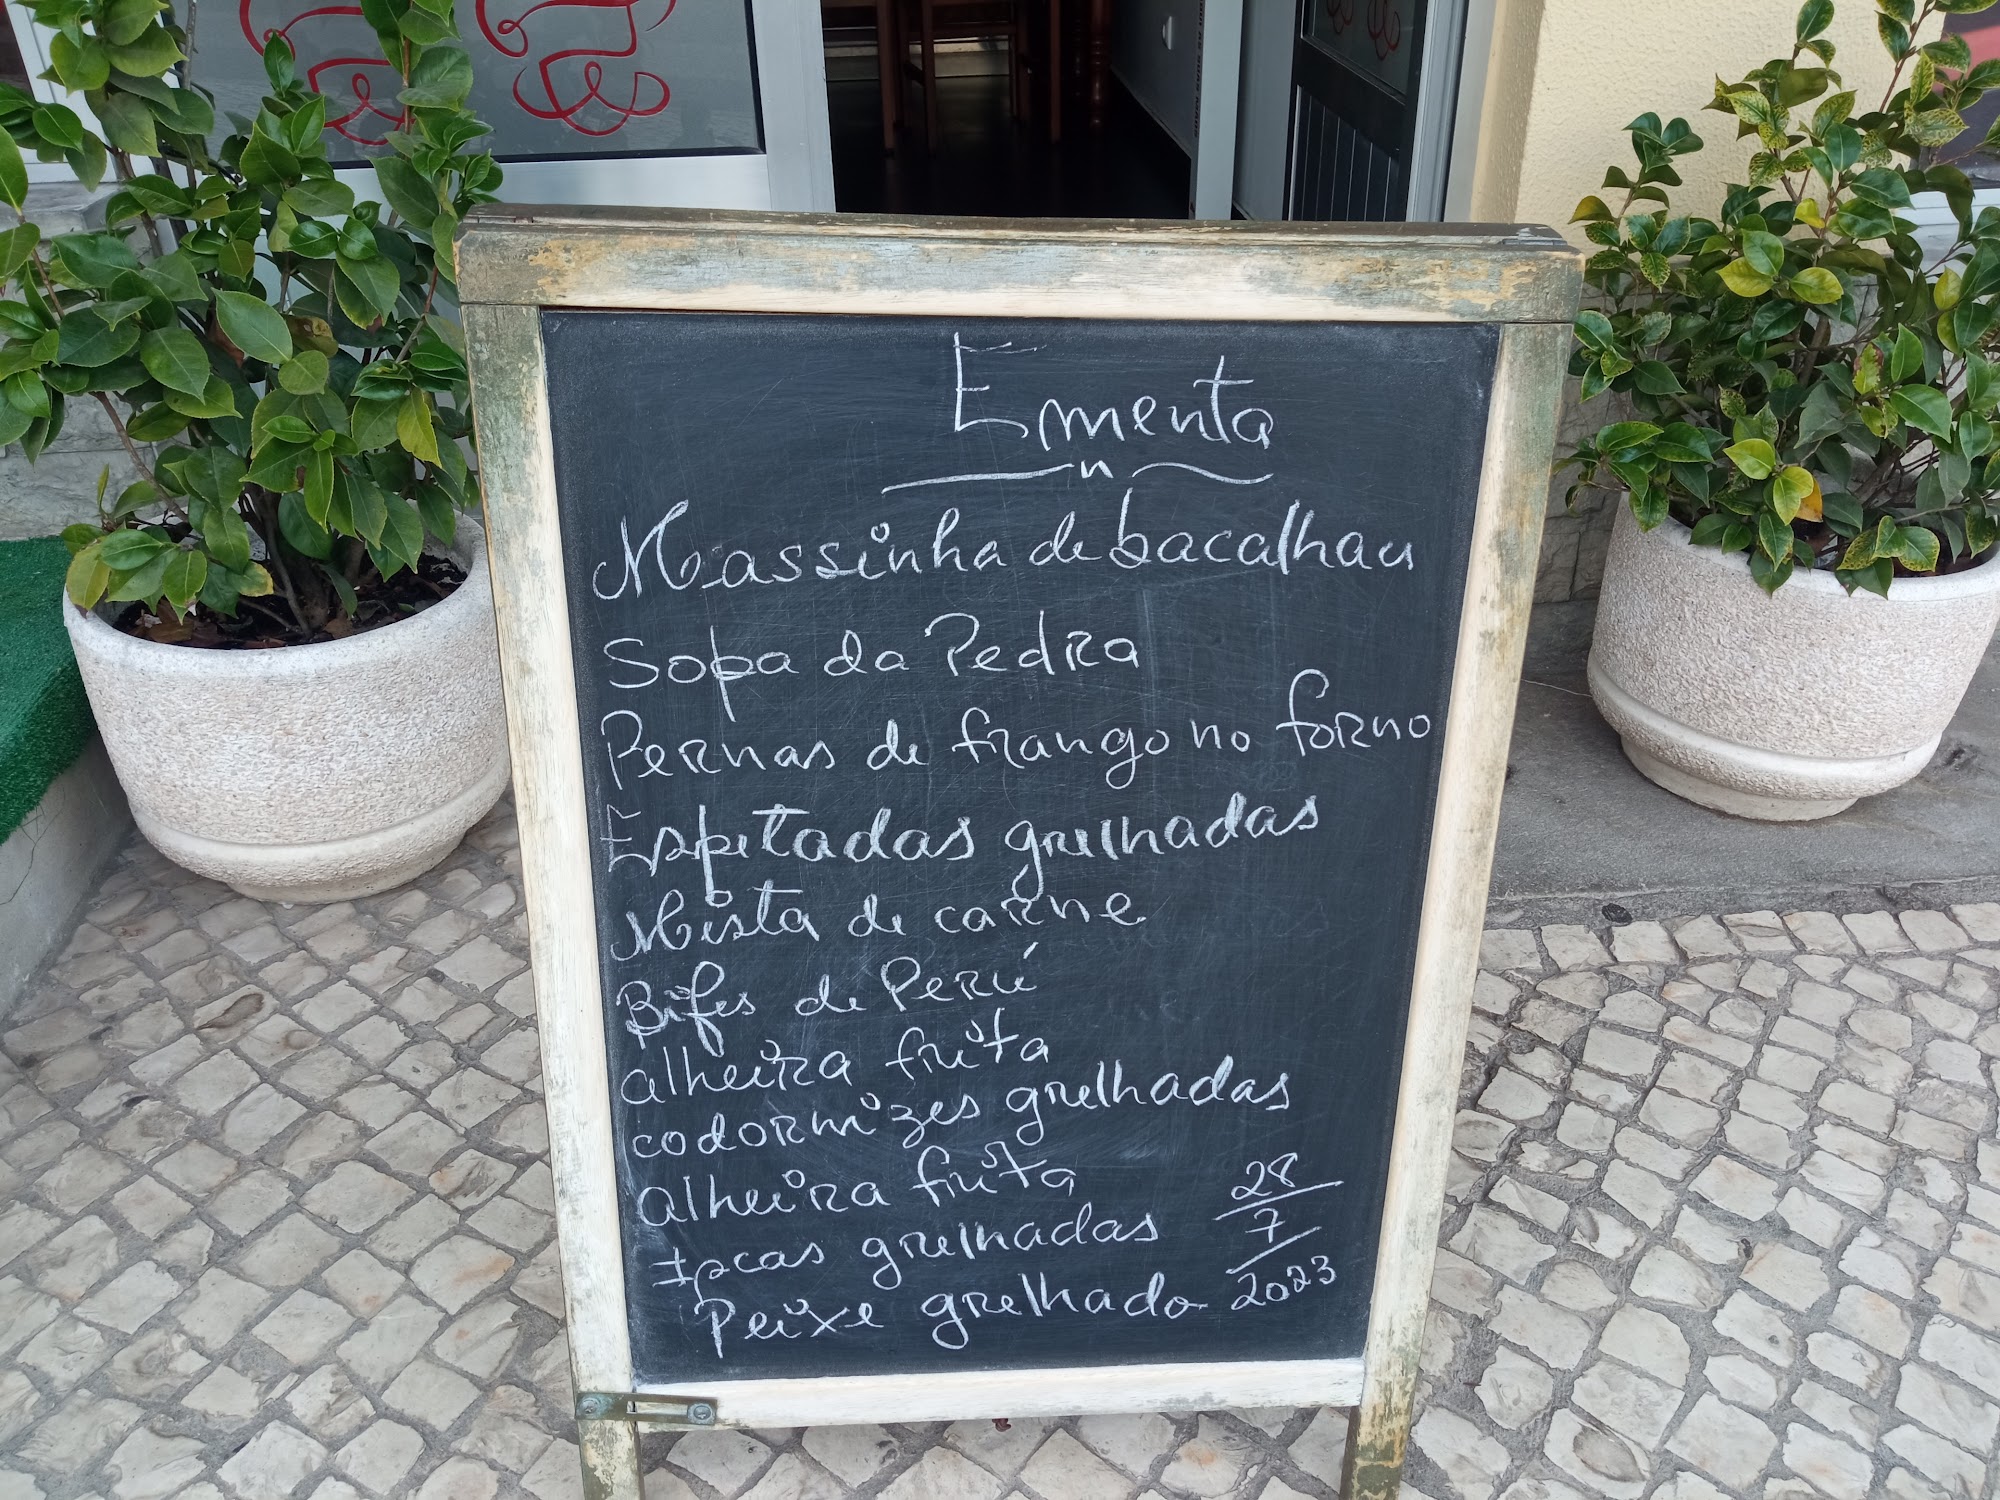 Ementa
Massinha de bacalhau
Sopa da Pedra
Pernas de frango no forno
Espetadas grelhadas
Mista de carne
Bifes de Perú
alheira frita
codornizes grelhadas
alheira frita
Iscas grelhadas
Peixe grelhado
28
7
2023